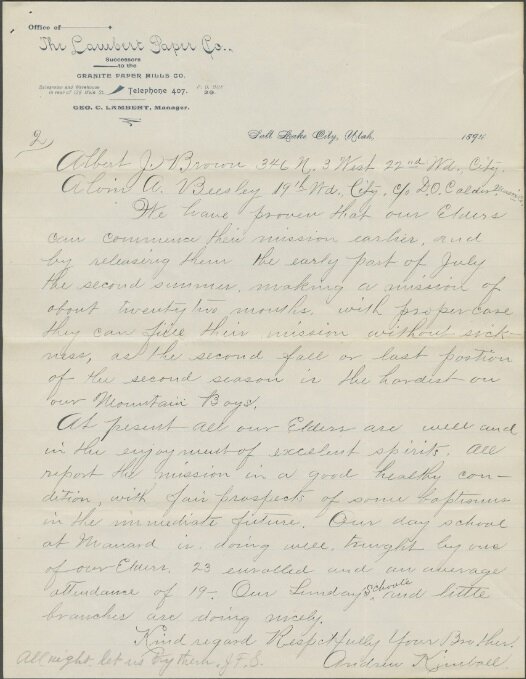 Office of
The Lambert Paper Co.,
Successors
to the
GRANITE PAPER MILLS CO.
Salesroom and Warehouse
in rear of 126 Main St.
Telephone 407.
P. O. BOX
29
GEO. C. LAMBERT, Manager.
Salt Lake City, Utah, 1894
2)
Albert J. Brown 346 N. 3 West 22nd Wd. City.
Alvin A. Beesley 19th Wd. City. c/o D.O. Calder
We have proven that our Elders
can commence their mission earlier, and
by releasing them the early part of July
the second summer, making a mission of
about twenty two months, with proper care
they can fill their mission without sick-
ness, as the second fall or last portion
of the second season is the hardest on
our Mountain Boys.
At present all our Elders are well and
in the enjoyment of excelent spirits. All
report the mission in a good healthy con-
dition, with fair prospects of some baptisms
in the immediate future. Our day school
at Manard is doing well, taught by one
of our Elders. 23 enrolled and an average
attendance of 19-. Our Sunday schools and little
branches are doing nicely.
Kind regard Respectfully Your Brother.
Andrew Kimball.
All right, let us try them. J.F.S.